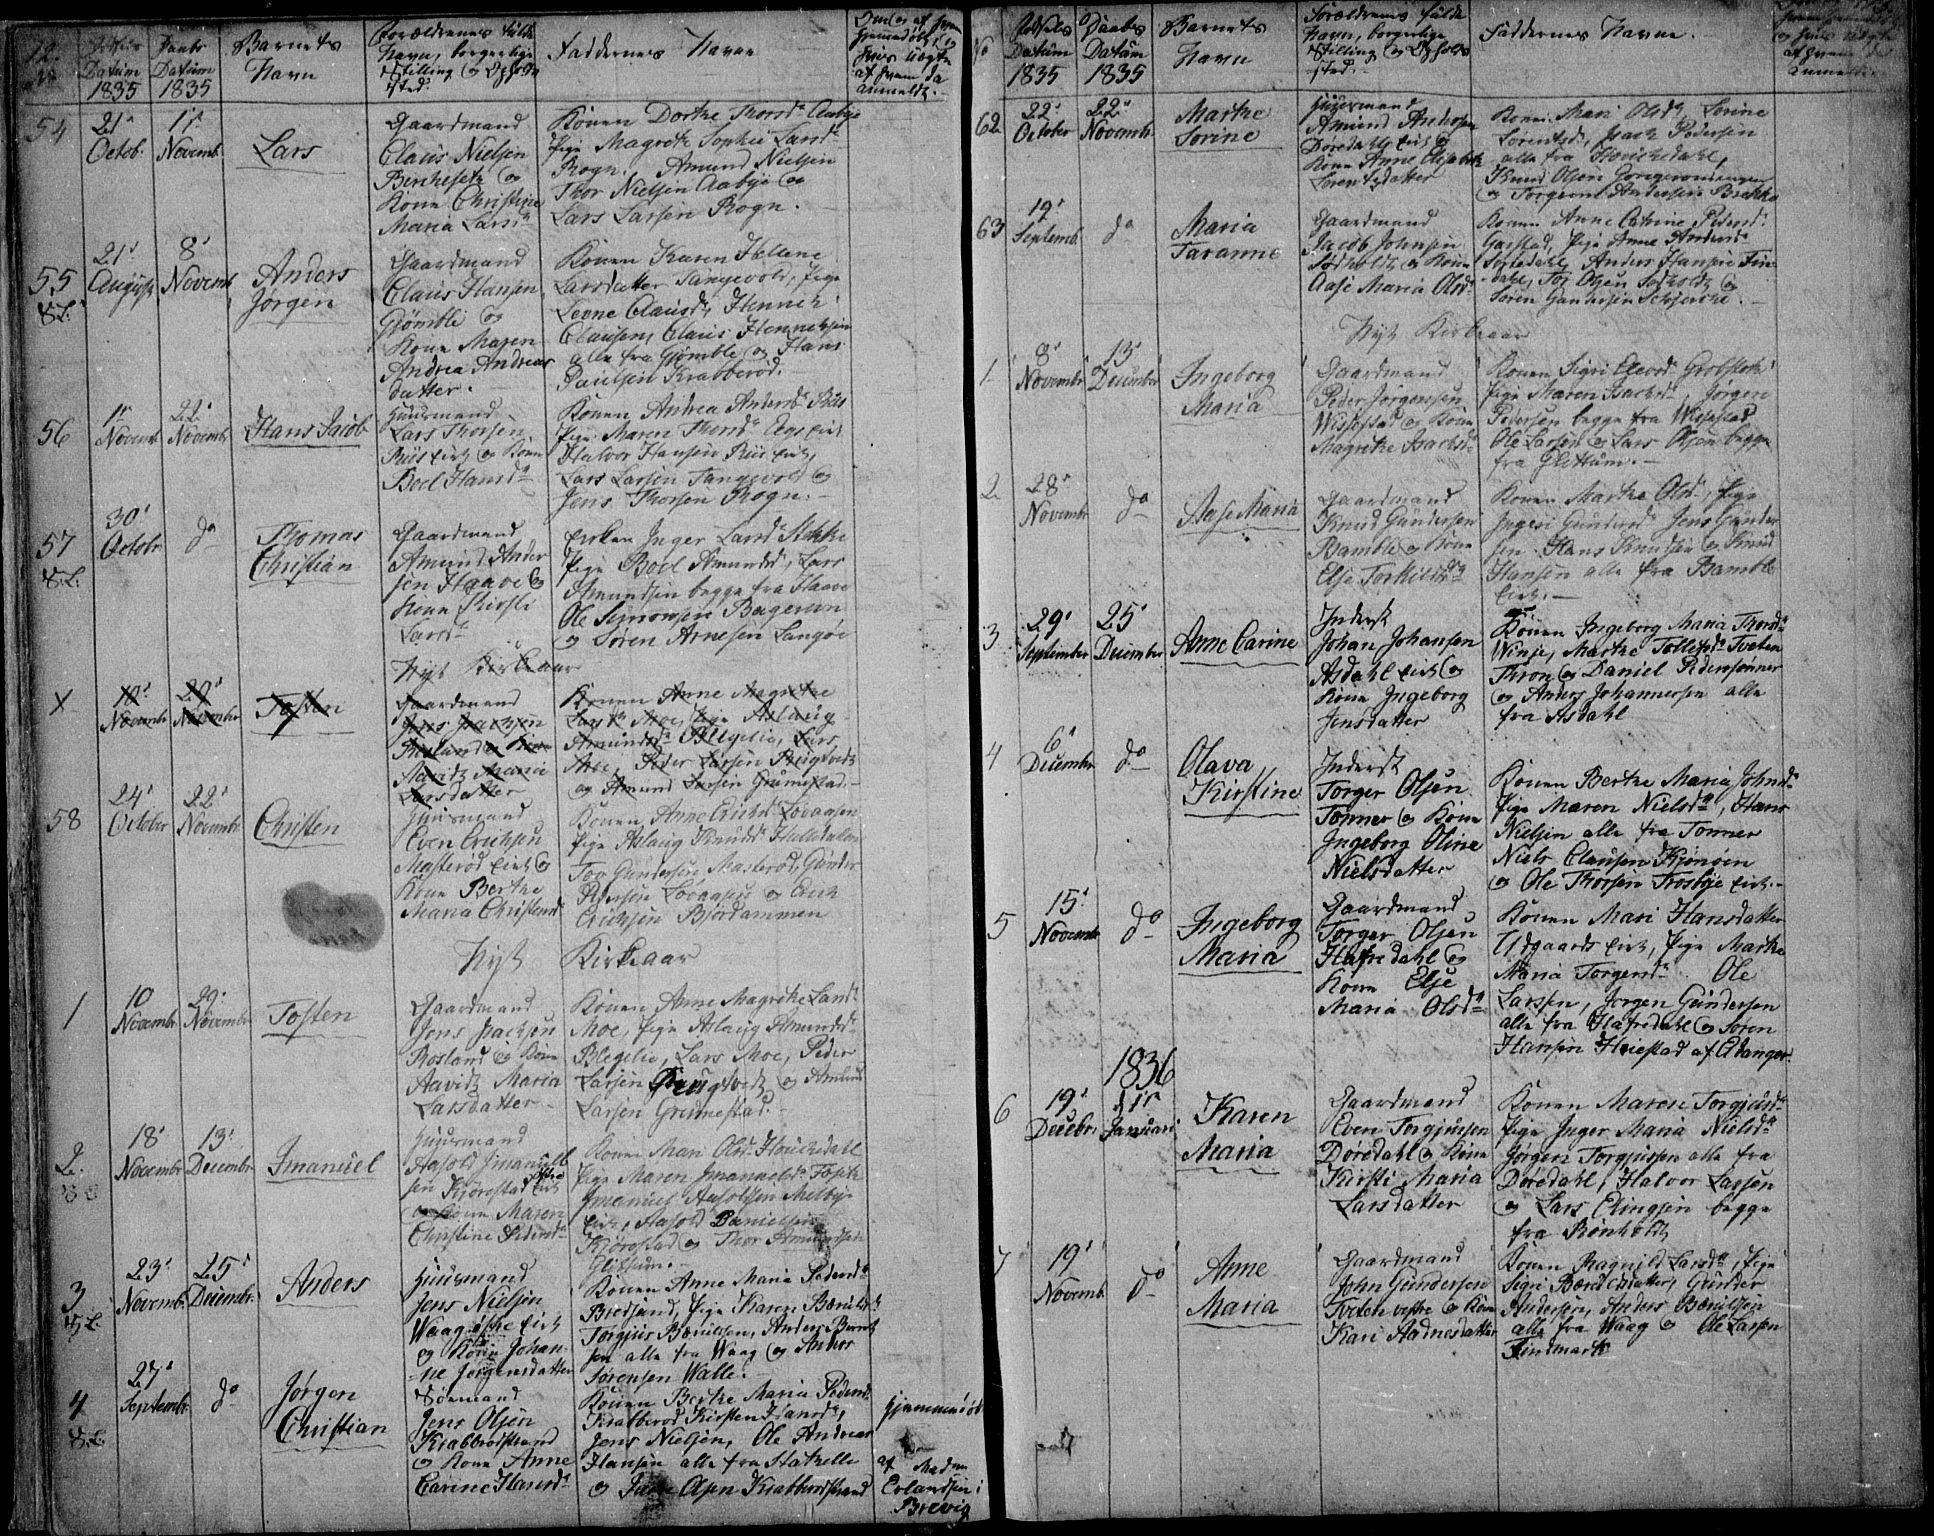 No
Fødsels
Datum
1835
Daabs
Datum
1835
Barnets
Navn
Forældrenes fulde
Navn, borgerlige
Stilling og Opholds
sted.
Faddernes Navne
54
21'
Octob.
1'
Novemb.
Lars
Gaardmand
Claus Nielsen
og
Kone Christine
Maria Larsd.
Konen Dorthe Thorsd. Aabye
Pige Magrete Sophie Larsd.
Rogn. Amund Nielsen
Thor Nielsen Aabye og
Lars Larsen Rogn.
55
21'
August
8'
Novemb.
Anders
Jørgen
Gaardmand
Claus Hansen
Gjømble og
Kone Maren
Andrea Andreas
datter.
Konen Karen Hellene
Larsdatter Tangevold, Pige
Leone Clausd. Hennek
Clausen, Claus Henneksen
alle fra Gjømble og Hans
Paulsen Krabberød.
56
1'
Novemb.
22'
Novemb.
Hans Jacob
Huusmand
Lars Thorsen
Riis Eiet og Kone
Boel Hansd.
Konen Andrea Andersd. Riis
Pige Maren Thorsd. Aas Eiet
Halvor Hansen Riis Eiet,
Lars Larsen Tangevold og
Jens Thorsen Rogn.
57
30'
Octobr.
do
Thomas
Christian
Gaardmand
Amund Ander
sen Haave og
Kone Kirsti
Larsd.
Enken Inger Larsd. Stokke
Pige Boel Amundsd., Lars
Amundsen begge fra Haave
Ole Simonsen
og Søren Arnesen Langøe
Nyt Kirkeaar
X
10'
Novembr.
29'
Novembr.
Tosten
Gaardmand
Jens Isachsen
Rosland og Kone
Aavit Maria
Larsdatter
Konen Anne Magrethe
Larsd. Moe, Pige Aslaug
Amundsd. Blegelie, Lars
Moe, Peder Larsen
og Amund Larsen Grummestad.
58
24'
October
22'
Novembr.
Christen
Huusmand
Even Erichsen
Masterød Eiet og
Kone Berthe
Maria Christensd.
Konen Anne Erichsd. Lovaasen
Pige Aslaug Knudsd.
Tov Gundersen Masterød, Gunder
Lovaasen og Erich
Erichsen Bjørdammen
Nyt Kirkeaar
1
10
Novembr.
29'
Novembr.
Tosten
Gaardmand
Jens Isachsen
Rosland og Kone
Aavit Maria
Larsdatter
Konen Anne Magrethe Larsd.
Moe, Pige Aslaug Amundsd.
Blegelie, Lars Moe, Peder
Larsen og Amund
Larsen Grummestad.
2.
18'
Novembr.
13'
Decembr.
Imanuel
Huusmand
Aasold Imanuel
sen Kjørestad Eiet
og Kone Maren
Christine Pedersd.
Konen Mari Olsd.
Pige Maren Imanuelsd.
Imanuel Aasoldsen Melbye
Eiet, Aasold Danielsen
Kjørestad og Thor Amundsen
Glittum.
3
23'
Novemb.
25'
Decembr.
Anders
Huusmand
Jens Nielsen
Waag Eiet
og Kone Johan-
ne Jørgensdatter
Konen Anne Maria Pedersd.
Bredsund, Pige Karen
Torgius, Anders
sen alle fra Waag og Anders
Sørensen Walle.
4
27'
Septembr.
do
Jørgen
Christian
Søemand
Jens Olsen
Krabberødstrand
og Kone Anne
Carine Hansd.
Konen Berthe Maria Pedersd.
Krabberød Kirsten Hansd.,
Jens Nielsen, Ole Andreas
Hansen alle fra Stathelle
og Olsen Krabberødstrand
hjemmedøbt
af Madm
Erlandsen i
Brevig
No
Fødsels
Datum
1835
Daabs
Datum
1835
Barnets
Navn
Forældrenes fulde
Navn, borgerlige
Stilling og Opholds
sted.
Faddernes Navne.
62
22'
October
22'
Novemb.
Marthe
Sorine
Huusmand
Amund Andersen
Dørdahl Eiet og
Kone Anne Elisabeth
Lorentsdatter
Konen Mari Olsd., Sorine
Lorentsd., Isach Pedersen
alle fra
Knud Olsen
og Torgrim Andersen Brekke
63
19'
Septemb.
do
Maria
Taranne
Gaardmand
Jacob Johnsen
og Kone
Aase Maria Olsd.
Konen Anne Catrine Pedersd.
Pige Anne Andersd.
Anders Hansen Fin
dahl, Tor Olsen og
Søren
Nyt Kirkeaar
1.
8'
Novembr.
13'
December
Ingeborg
Maria
Gaardmand
Peder Jørgensen
Wissestad og Kone
Magrethe Isachsd.
Konen Sigri Elevsd. Grobstok
Pige Maren Isachsd., Jørgen
Pedersen begge fra Wissestad
Ole Larsen og Lars Olsen begge
fra Glittum.
2.
28'
Novembr.
do
Aase Maria
Gaardmand
Knud Gundersen
Bamble og Kone
Else Torkildsd.
Konen Marthe Olsd., Pige
Ingeri Gundersd. Jens Gunder
sen. Hans Knudsen og Knud
Hansen alle fra Bamble
Eiet.
3
29'
September
25'
December
Anne Carine
Inderst
Johan Johansen
Asdahl Eiet og
Kone Ingeborg
Jensdatter
Konen Ingeborg Maria Trondsd.
Winje, Marthe Tollefsd. Tveten
Thron og Daniel Pedersønner
og Anders Johannesen alle
fra Asdahl
4
6'
Decembr.
do
Olava
Kirstine
Inderst
Torger Olsen
Tonner og Kone
Ingeborg Oline
Nielsdatter
Konen Berthe Maria Johnsd.
Pige Maren Nielsd., Hans
Nielsen alle fra Tonner
Niels Clausen Kjønøen
og Ole Thorsen Trosbye Eiet.
5
15'
Novembr.
do
Ingeborg
Maria
Gaardmand
Torger Olsen
Hafredahl og
Kone Else
Maria Olsd.
Konen Mari Hansdatter
Eiet, Pige Marthe
Maria Torgersd. Ole
Larssen, Jørgen Gundersen
alle fra Hafredahl og Søren
Hansen Høiestad af Edanger.
1836
6
19'
Decebr.
d 1'
Januari
Karen
Maria
Gaardmand
Even Torgjussen
Dørdahl og Kone
Kirsti Maria
Larsdatter
Konen Maren Torgjusd.
Pige Inger Maria Nielsd.
Jørgen Torgjussen alle fra
Dørdahl, Halvor Larsen
og Lars Ellingsen begge
fra Rønholt
7
19'
Novemb.
do
Anne
Maria
Gaardmand
John Gundersen
Tveten vestre og Kone
Kari Aadnesdatter
Konen Ragnild Larsd., Pige
Sigri datter, Gunder
Andersen, Anders
alle fra Waag og Ole Larsen
Findmark